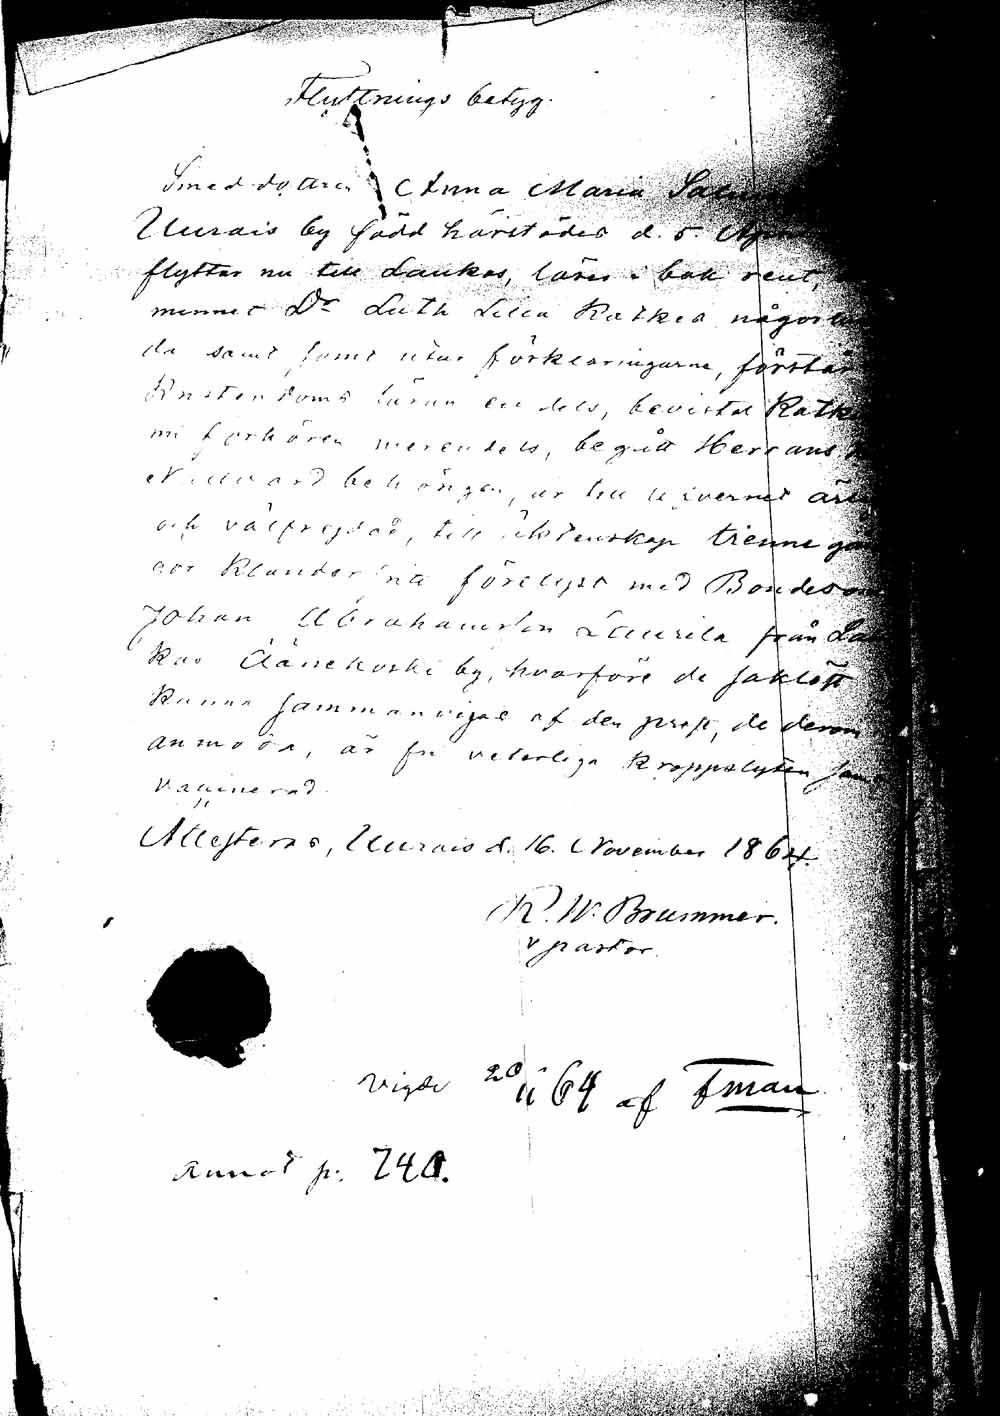 Flyttnings betyg.
Smeddottren Anna Maria
Uurais by född härstädes d. 5.
flyttar nu till Laukas, läser i bok rent,
minnet Dr Luth Lilla Katkes någorlun
da samt jemt utur förklaringarne, förstår
Kristendoms läran en dels, bevistat Katke
mi förhören merendels, begått Herrans
Nattvard behörigen, är till lefvernet ärlig
och välfrejdad, till äktenskap trenne gån
gor klanderfria förelyst med Bondeson
Johan Abrahamsson Laurila från Lau
kas Äänekoski by, hvarföre de saklöst
kunna sammanvigas af den prest, de derom
anmoda, är fri veterliga kroppslyten samt
vaccinerad.
Attesteras, Uurais d. 16. November 1864.
K. W. Brummer.
v pastor.
Vigde 20/11 64 af Fman
Annot p. 740.